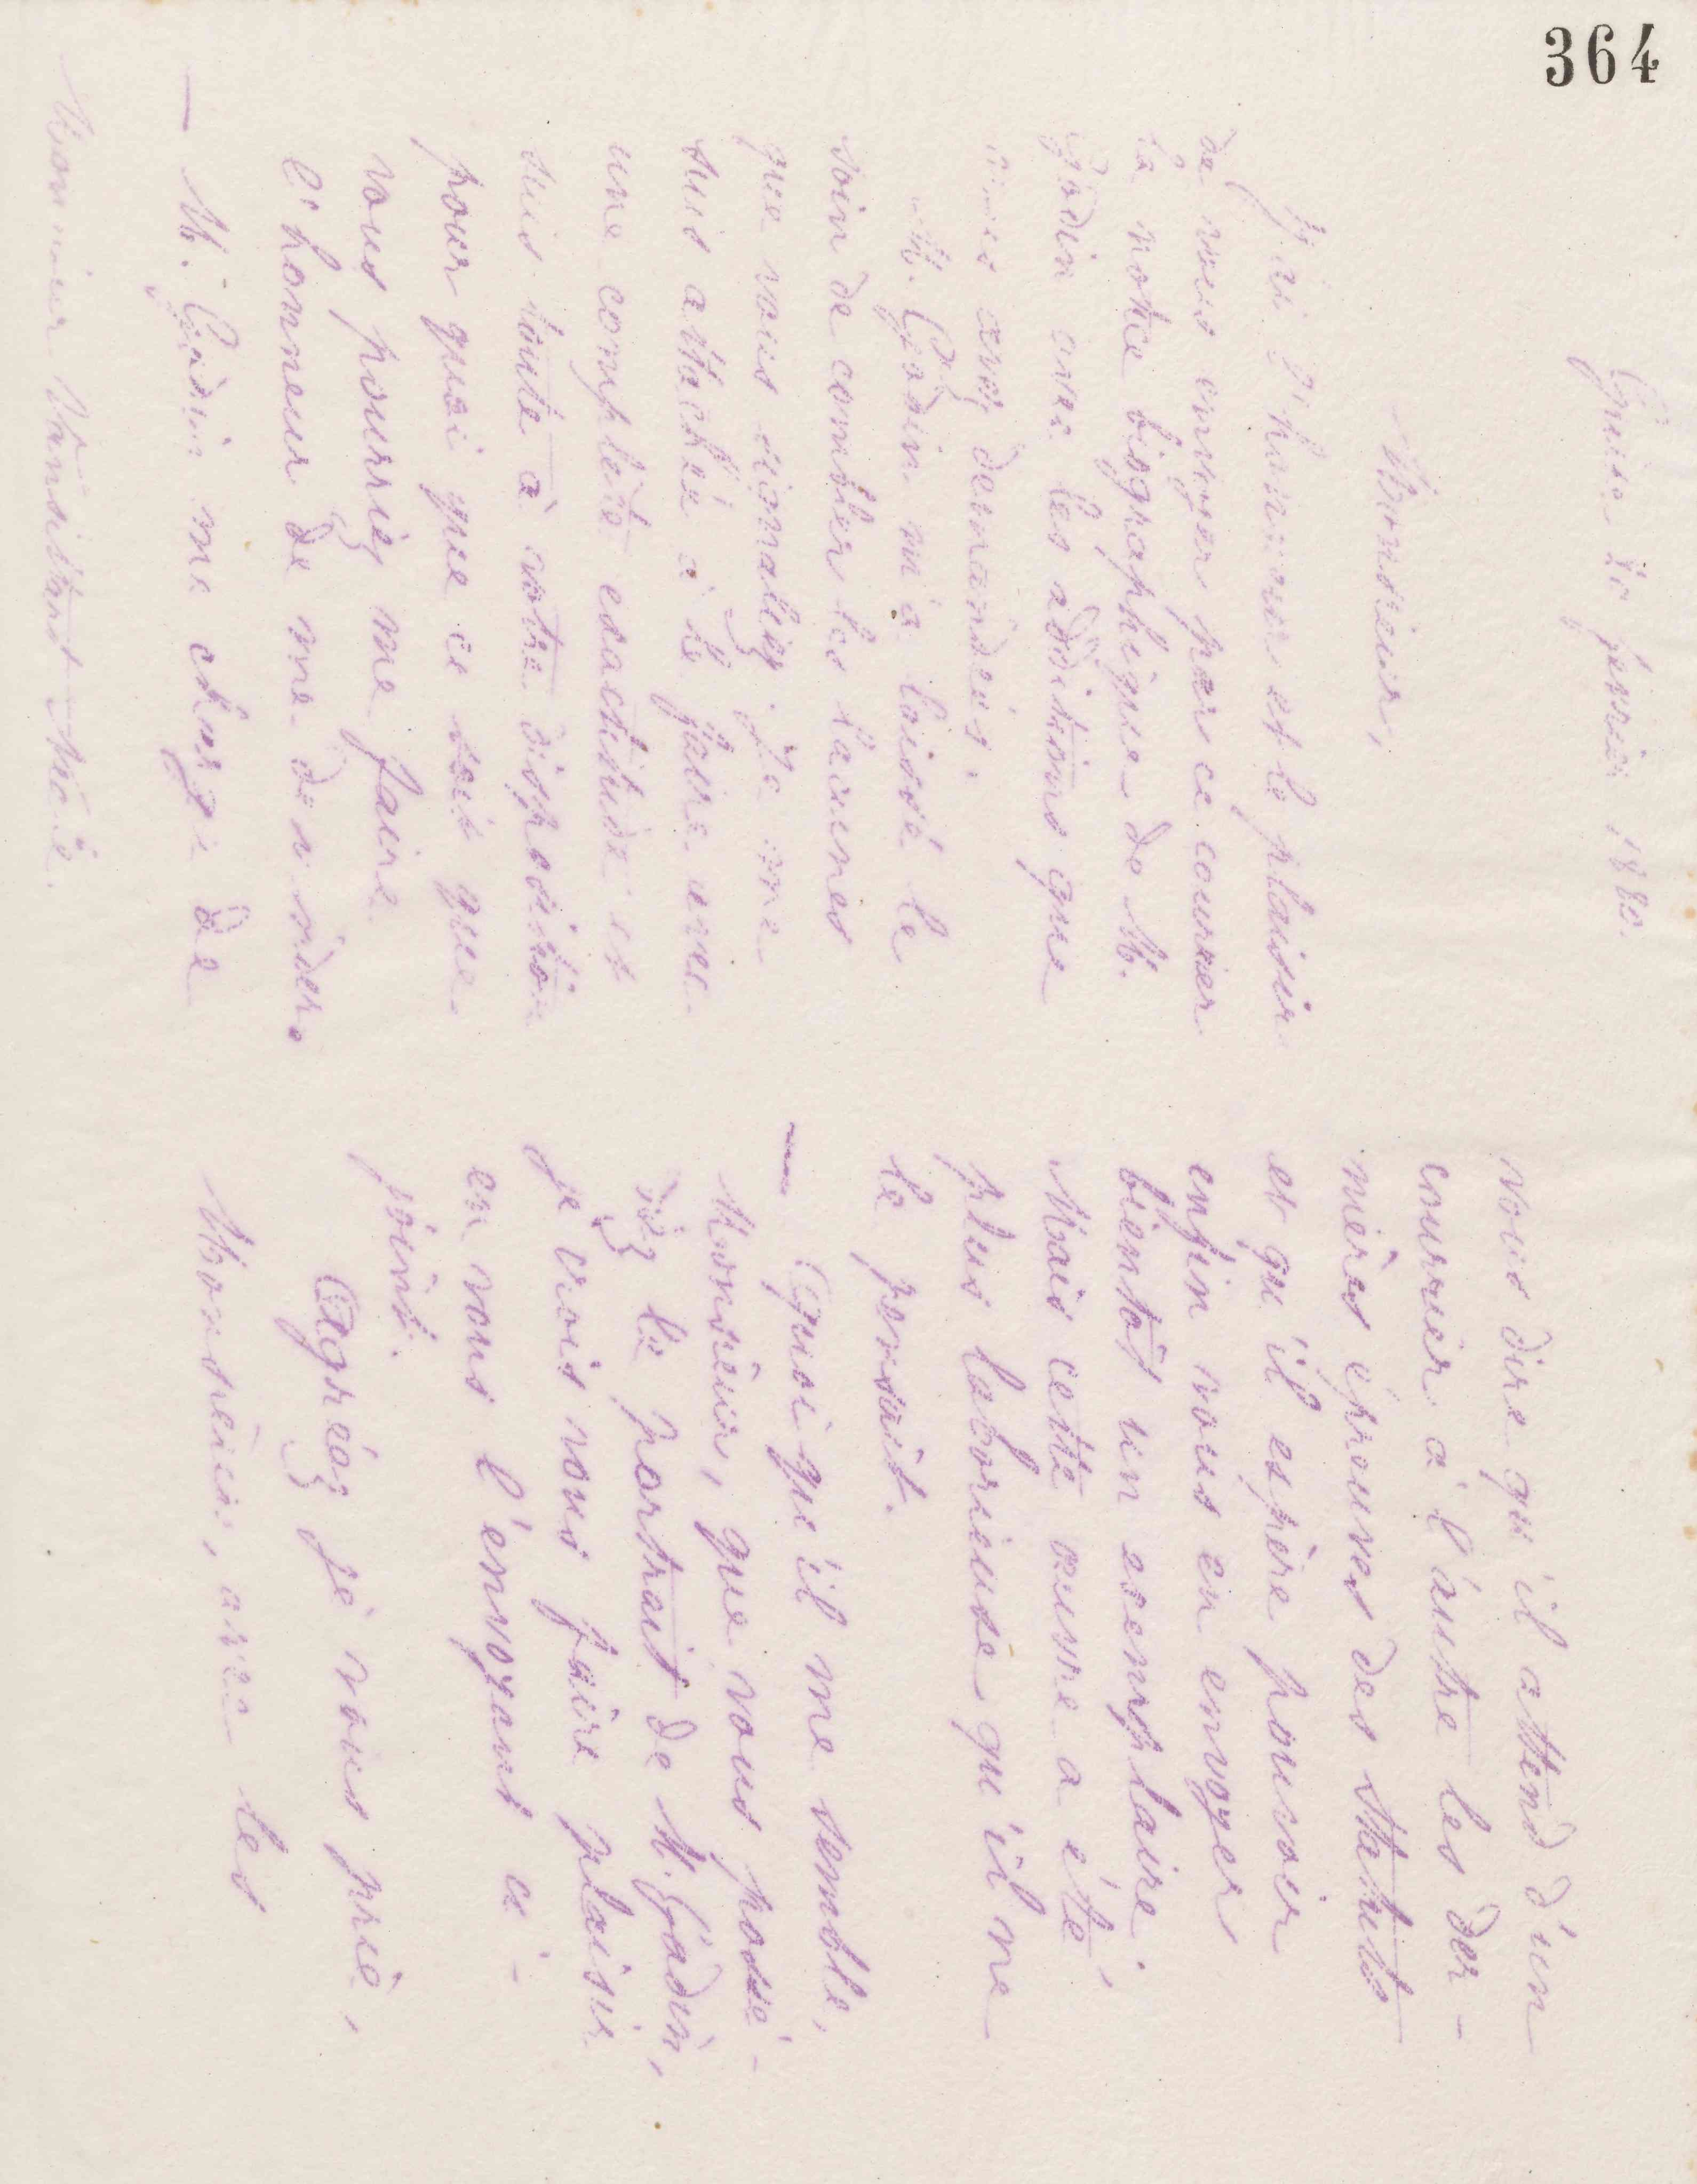 364
Guise 20 février 1880.
Monsieur,
J'ai l'honneur et le plaisir
de vous envoyer par ce courrier
la notice biographique de M.
Godin avec les additions que
vous avez demandées.
M. Godin m'a laissé le
soin de combler les lacunes
que vous signaliez. Je me
suis attaché à le faire avec
une complète exactitude et
suis toute à votre disposition
pour quoi que ce soit que
vous pourriez me faire
l'honneur de me demander.
— M. Godin me charge de
Monsieur
vous dire qu'il attend d'un
courrier à l'autre les der-
nières épreuves des Statuts
et qu'il espère pouvoir
enfin vous en envoyer
bientôt un exemplaire.
Mais cette œuvre a été
plus laborieuse qu'il ne
le pensait.
— Quoi qu'il me semble,
Monsieur, que vous possé-
diez le portrait de M. Godin,
je crois vous faire plaisir
en vous l'envoyant ci-
joint.
Agréez je vous prie,
Monsieur, avec les